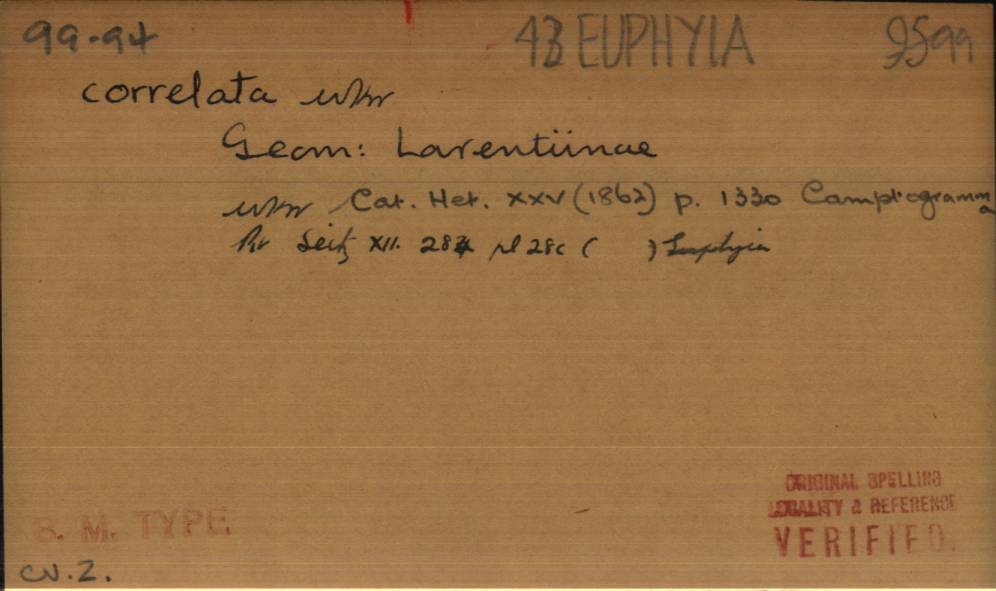 99-94 43 EUPHYIA 9599
correlata wkr
Geom: Larentiinae
wkr Cat. Het. XXV (1862) p. 1330 Camptogramma
Pr Seitz XII. 284 pl 28c ( ) Euphyia
ORIGINAL SPELLING
LOCALITY & REFERENCE
VERIFIED.
B. M. TYPE